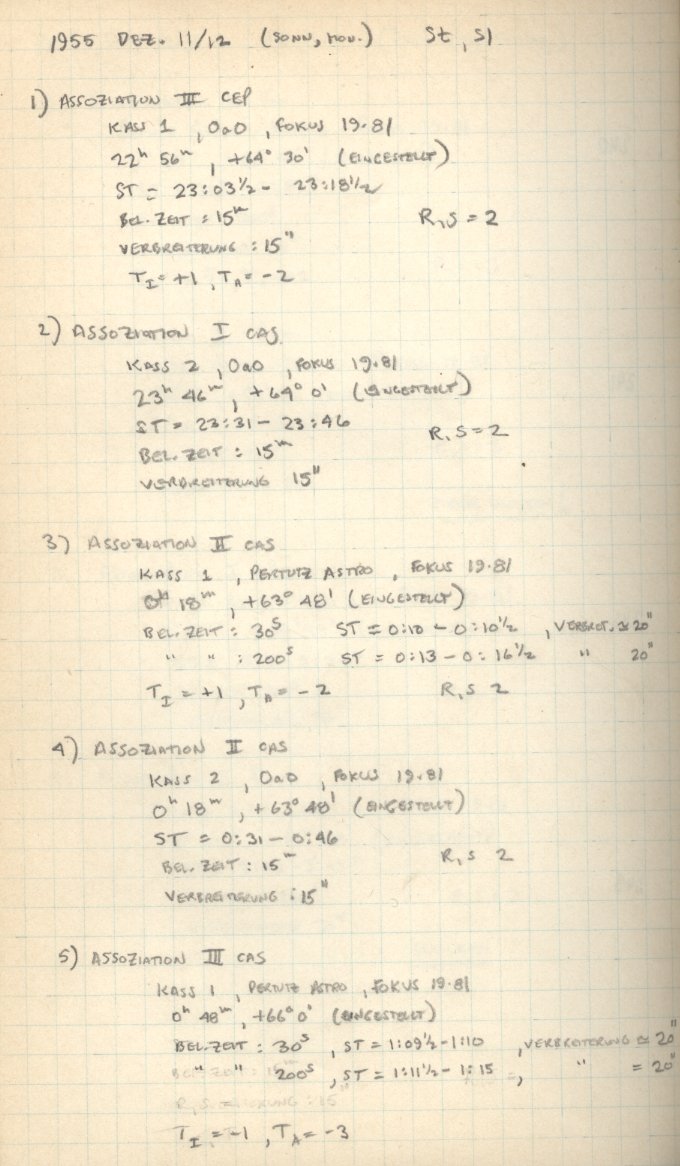 1955 DEZ. 11/12 (SONN, MON.) St, Sl
1) ASSOZIATION III CEP
KASS 1, OaO, FOKUS 19.81
22h 56m, +64° 30' (EINGESTELLT)
ST = 23:03½ - 23:18½
BEL. ZEIT : 15m R,S = 2
VERBREITERUNG : 15"
T_I = +1, T_A = -2
2) ASSOZIATION I CAS
KASS 2, OaO, FOKUS 19.81
23h 46m, +64° 0' (EINGESTELLT)
ST = 23:31 - 23:46
R,S = 2
BEL. ZEIT : 15m
VERBREITERUNG 15"
3) ASSOZIATION II CAS
KASS 1, PERTUTZ ASTRO, FOKUS 19.81
0h 18m, +63° 48' (EINGESTELLT)
BEL. ZEIT : 30s ST = 0:10 - 0:10½, VERBREIT. ≅ 20"
" " : 200s ST = 0:13 - 0:16½ " 20"
T_I = +1, T_A = -2 R,S 2
4) ASSOZIATION II CAS
KASS 2, OaO, FOKUS 19.81
0h 18m, +63° 48' (EINGESTELLT)
ST = 0:31 - 0:46
BEL. ZEIT : 15m R,S 2
VERBREITERUNG : 15"
5) ASSOZIATION III CAS
KASS 1, PERTUTZ ASTRO, FOKUS 19.81
0h 48m, +66° 0' (EINGESTELLT)
BEL. ZEIT : 30s, ST = 1:09½ - 1:10, VERBREITERUNG ≅ 20"
" " 200s, ST = 1:11½ - 1:15, " = 20"
T_I = -1, T_A = -3